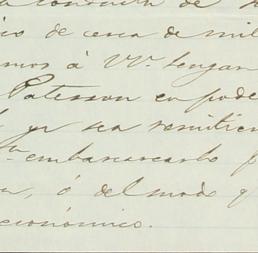 conducta de
de cerca de mil
mos á VV. tengan
Paterson en pode
sea remitien
embarcarlo p
, ó del modo q
económico.